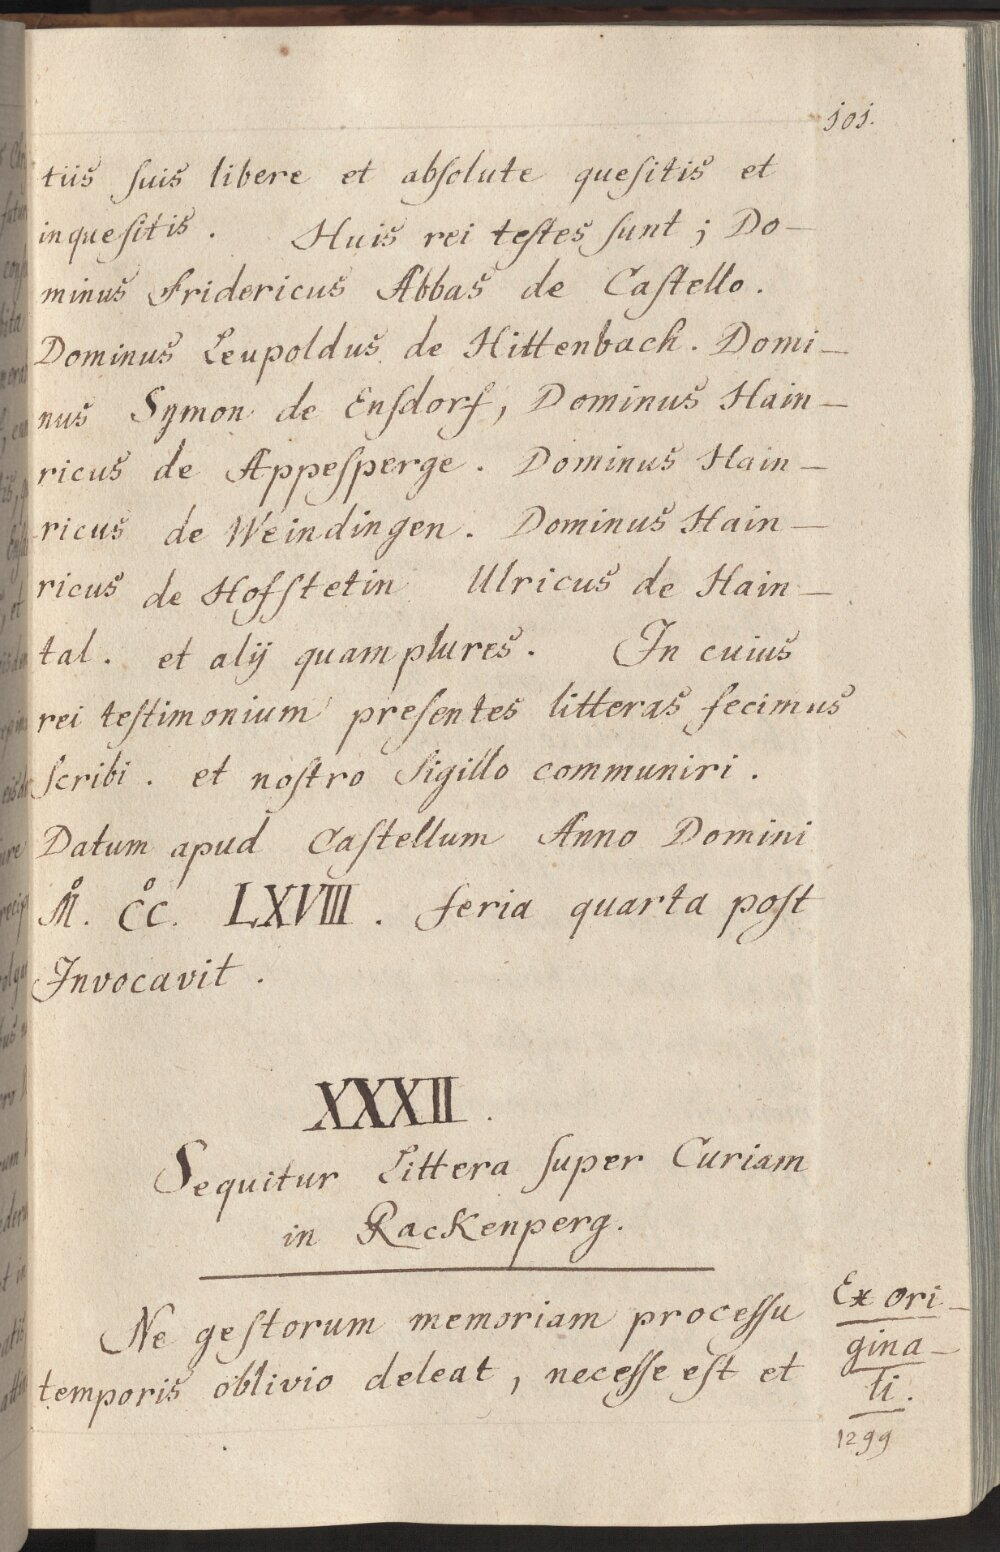 101.
tiis suis libere et absolute quesitis et
inquesitis. Huis rei testes sunt; Do-
minus Fridericus Abbas de Castello.
Dominus Leupoldus de Hittenbach. Domi-
nus Symon de Ensdorf, Dominus Hain-
ricus de Appesperge. Dominus Hain-
ricus de Weindingen. Dominus Hain-
ricus de Hofstetin Ulricus de Hain-
tal. et alij quamplures. In cuius
rei testimonium presentes litteras fecimus
scribi. et nostro Sigillo communiri.
Datum apud Castellum Anno Domini
M̊. CC̊. LXVIII. feria quarta post
Invocavit.
XXXII.
Sequitur Littera super Curiam
in Rackenperg.
Ne gestorum memoriam processu
temporis oblivio deleat, necesse est et
Ex ori-
gina-
li.
1299